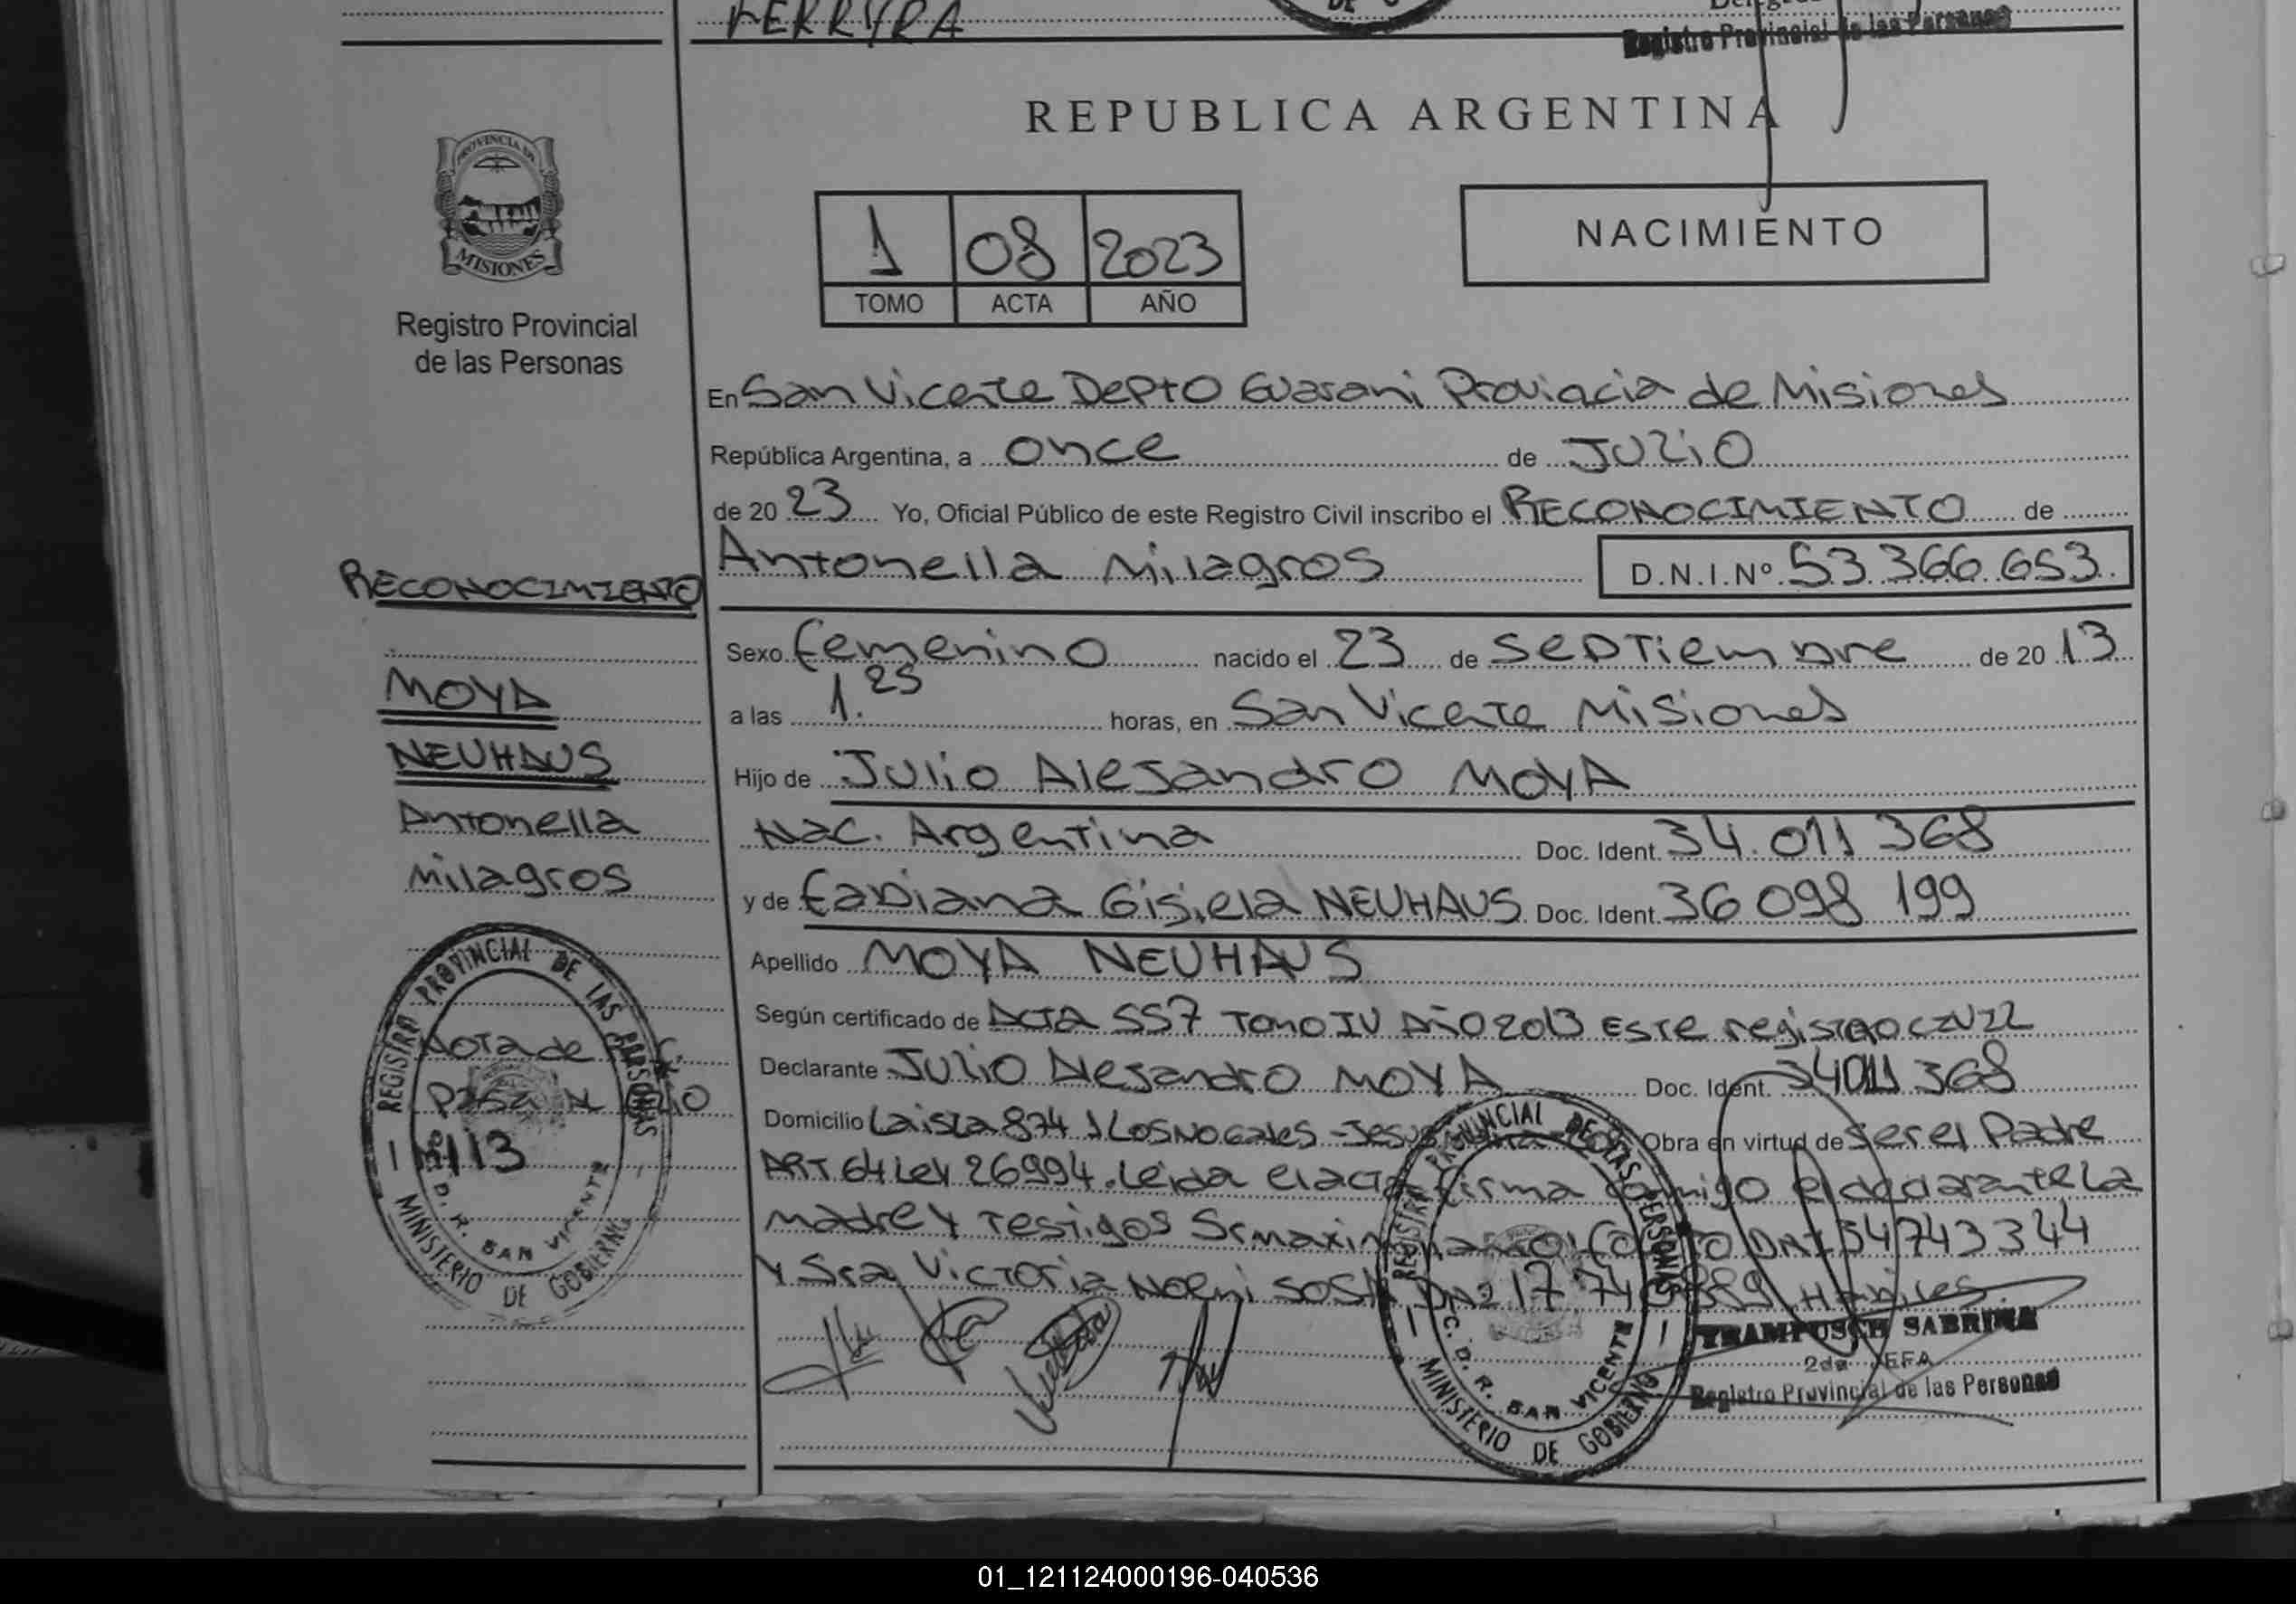 FERRYRA
Registro Provincial de las Personas
REPUBLICA ARGENTINA
PROVINCIA DE
MISIONES
Registro Provincial
de las Personas
1 08 2023
TOMO ACTA AÑO
NACIMIENTO
En San Vicente Depto Guarani Provincia de Misiones
República Argentina, a once de Julio
de 20 23 Yo, Oficial Público de este Registro Civil inscribo el RECONOCIMIENTO de
Antonella Milagros D.N.I.Nº 53.366.653
RECONOCIMIENTO
MOYA
NEUHAUS
Antonella
Milagros
Sexo femenino nacido el 23 de Septiembre de 20 13
a las 1.25 horas, en San Vicente Misiones
Hijo de Julio Alejandro MOYA
Nac. Argentina Doc. Ident. 34.011 368
y de Fabiana Gisela NEUHAUS Doc. Ident. 36 098 199
Apellido MOYA NEUHAUS
Según certificado de Acta 557 Tomo IV Año 2013 Este registro civil
Declarante Julio Alejandro MOYA Doc. Ident. 34011 368
Domicilio La isla 874 Los Nogales - Obra en virtud de Ser el Padre
ART 64 Ley 26994. Leida el acta firma conmigo el declarante la
madre y testigos Sr DNI 34743344
Y Sra Victoria Noemi SOSA DNI 17.740889
Nota de
113
REGISTRO PROVINCIAL DE LAS PERSONAS
D. R. SAN VICENTE
MINISTERIO DE GOBIERNO
REGISTRO PROVINCIAL DE LAS PERSONAS
D. R. SAN VICENTE
MINISTERIO DE GOBIERNO
TRAMPUSCH SABRINA
2da JEFA
Registro Provincial de las Personas
01_121124000196-040536